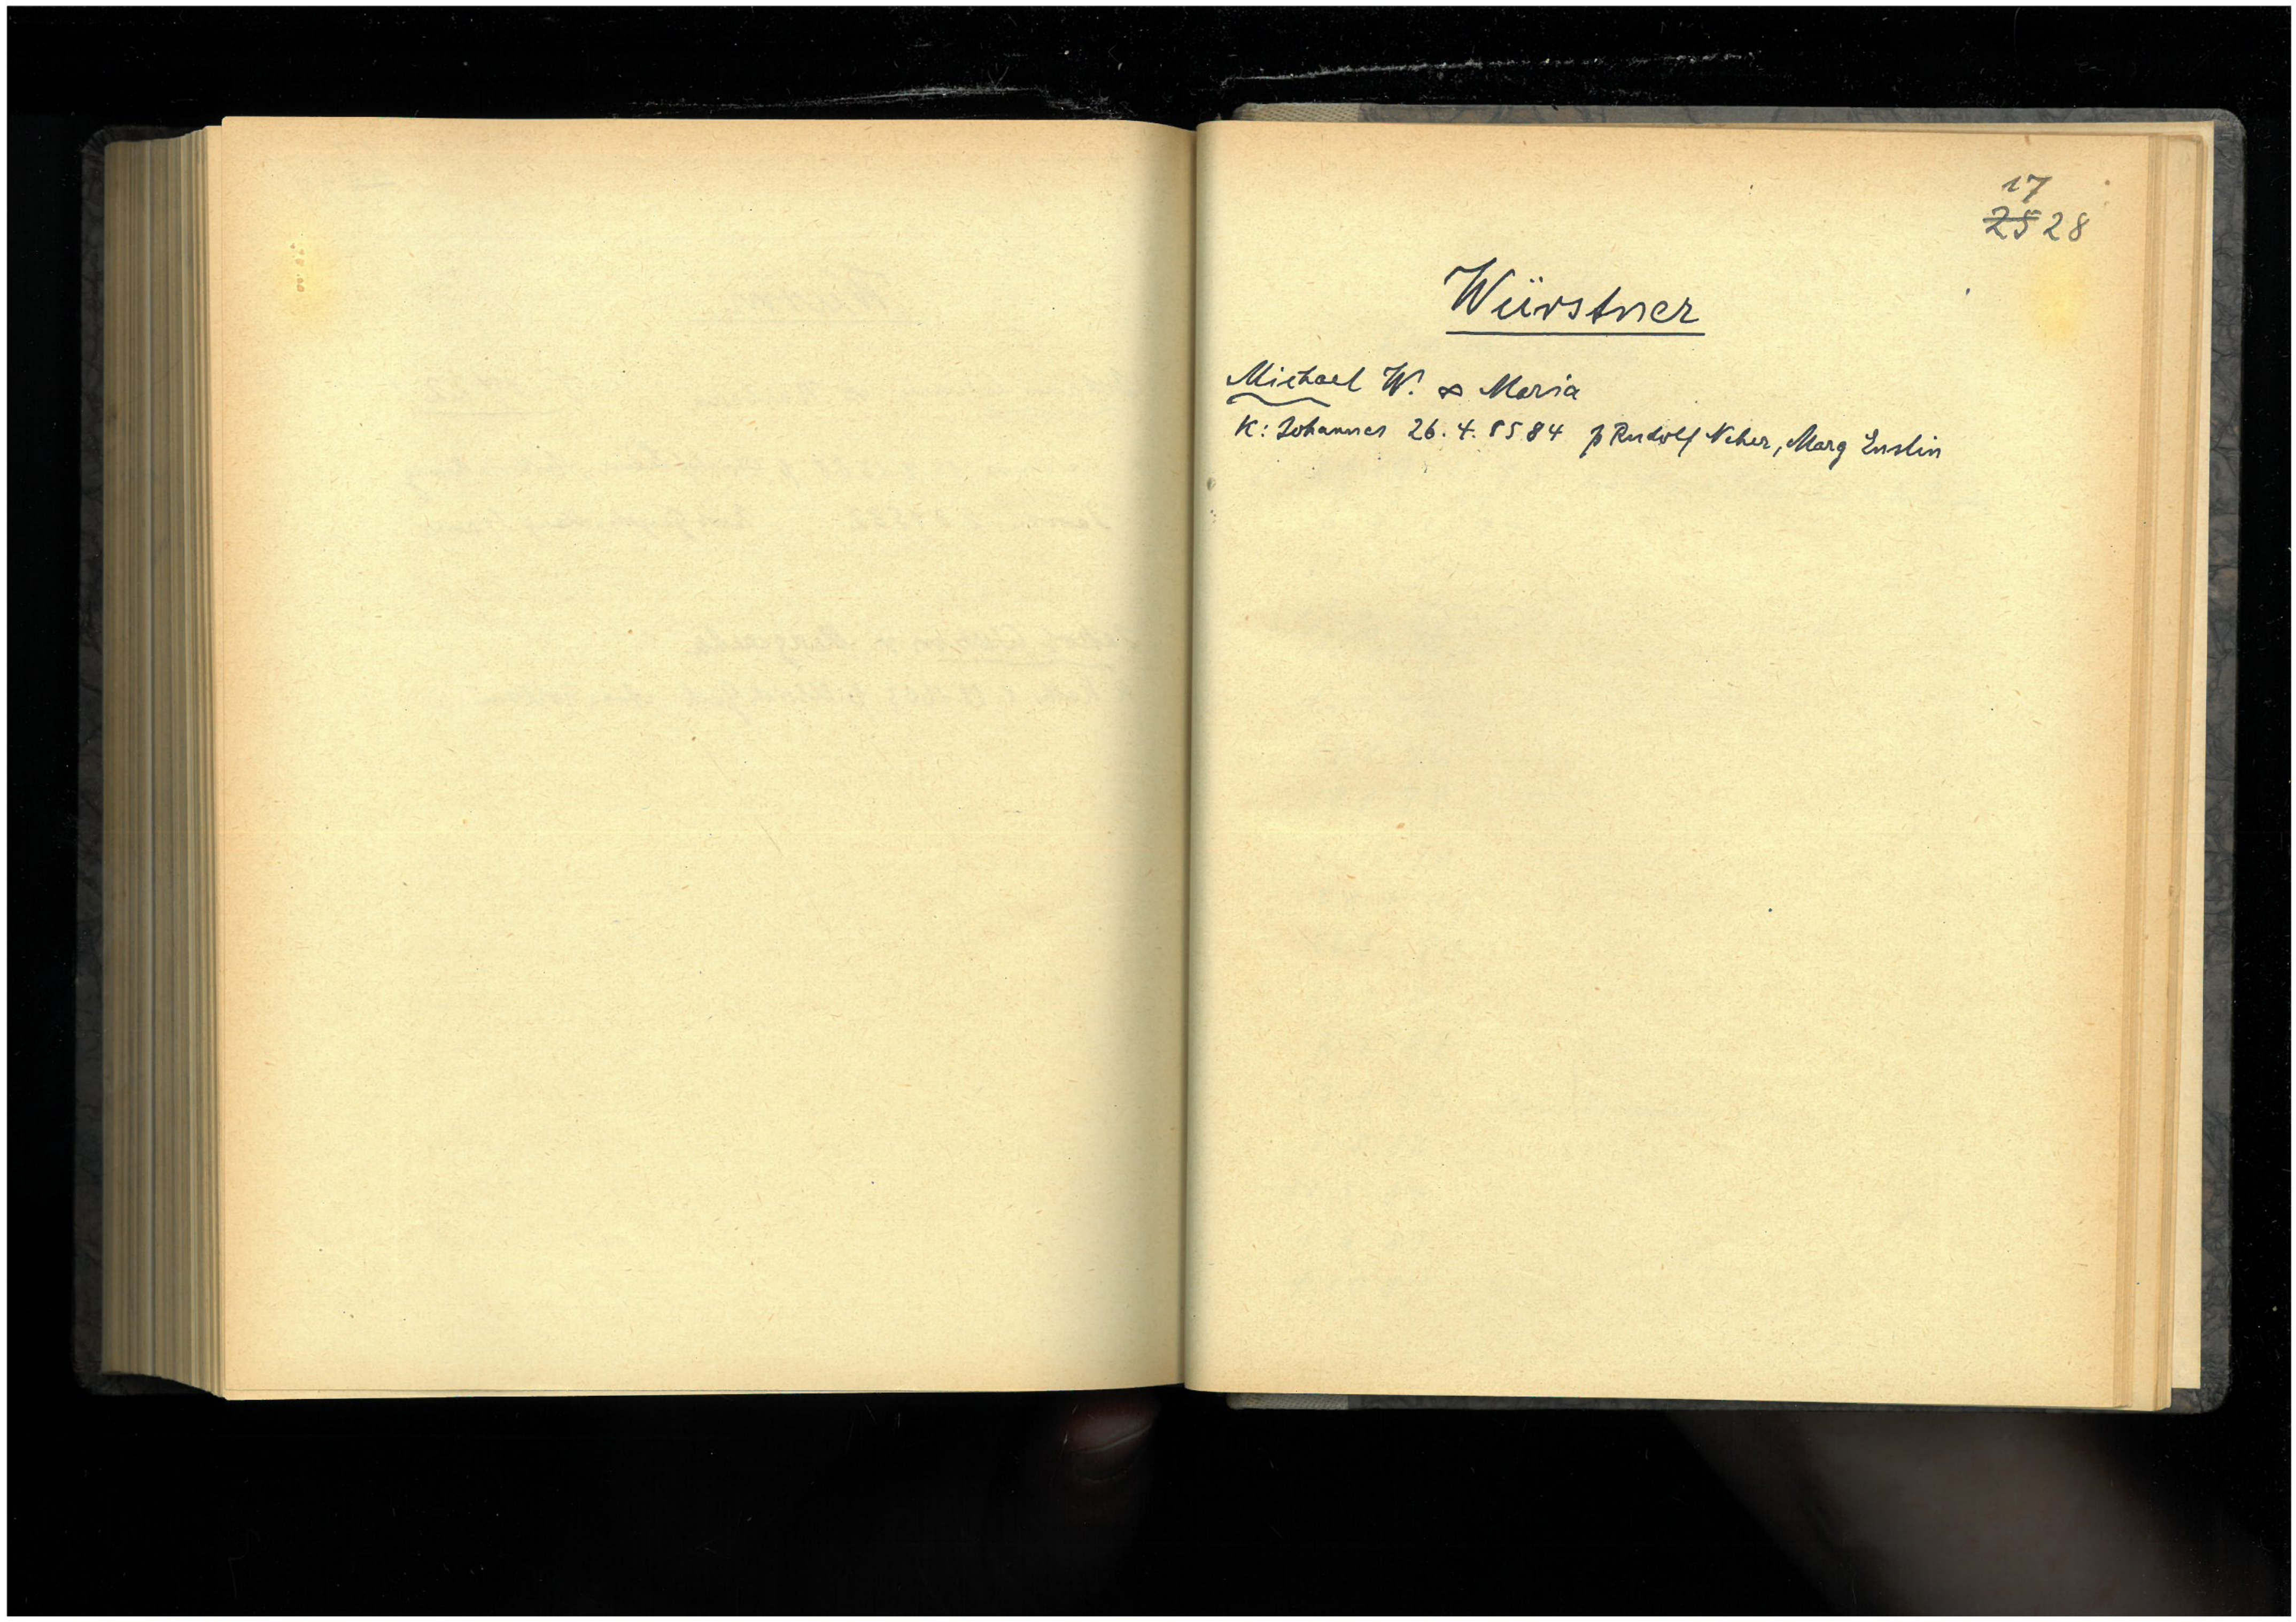 17
25 28
Würstner
Michael W. ∞ Maria
K: Johannes 26.4.1584 p Rudolf Neher, Marg Enslin